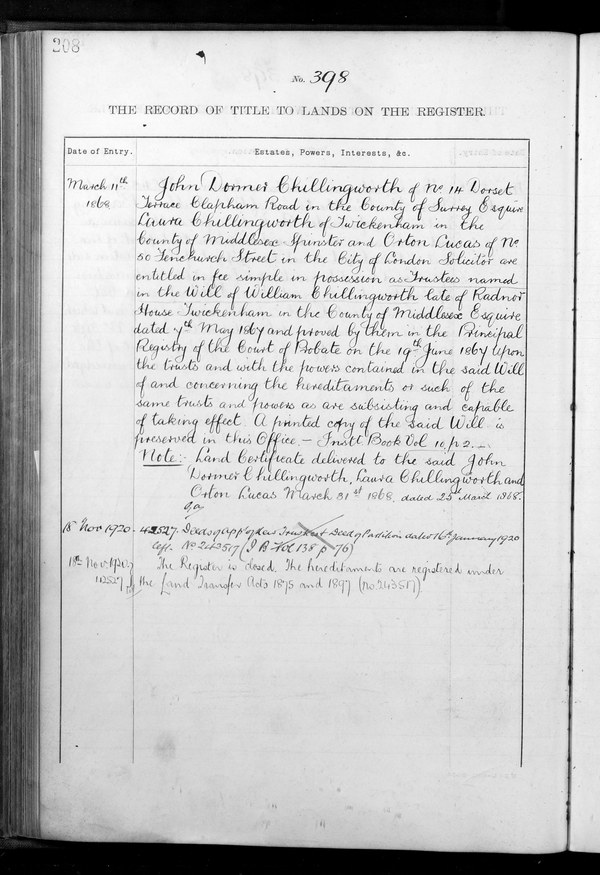 208
No. 398
THE RECORD OF TITLE TO LANDS ON THE REGISTER.
Date of Entry.
Estates, Powers, Interests, &c.
March 11th
1868
John Dormer Chillingworth of No. 14 Dorset
Terrace Clapham Road in the County of Surrey Esquire
Laura Chillingworth of Twickenham in the
County of Middlesex Spinster and Orton Lucas of No
50 Fenchurch Street in the City of London Solicitor are
entitled in fee simple in possession as Trustees named
in the Will of William Chillingworth late of Radnor
House Twickenham in the County of Middlesex Esquire
dated 7th May 1867 and proved by them in the Principal
Registry of the Court of Probate on the 19th June 1867 upon
the trusts and with the powers contained in the said Will
of and concerning the hereditaments or such of the
same trusts and powers as are subsisting and capable
of taking effect. A printed copy of the said Will is
preserved in this Office. – Instt Book Vol 10, p 2. –
Note:- Land Certificate delivered to the said John
Dormer Chillingworth, Laura Chillingworth and
Orton Lucas March 31st 1868, dated 25th March 1868.
18 Nov 1920 - Deeds of appt of new Trustees & Deed of Partition dated 16th January 1920
No 242517 (I B Vol 138 p 76)
18th Nov
The Register is closed. The hereditaments are registered under
the Land Transfer Acts 1875 and 1897 (no. 243517)